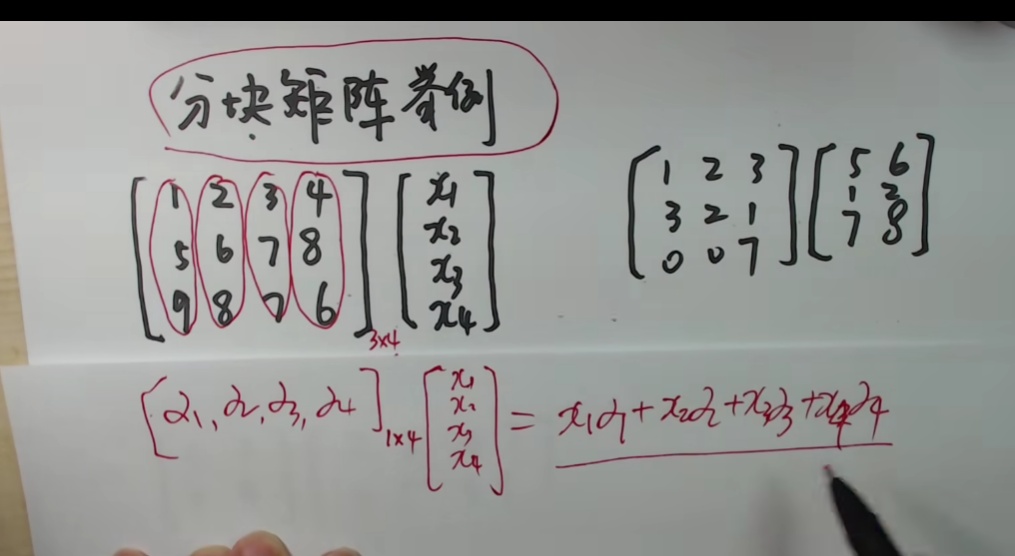 分块矩阵举例
[1 2 3 4
5 6 7 8
9 8 7 6]3×4 [x1
x2
x3
x4]
[1 2 3
3 2 1
0 0 7] [5 6
1 2
7 8]
[α1, α2, α3, α4]1×4 [x1
x2
x3
x4] = x1α1+x2α2+x3α3+x4α4